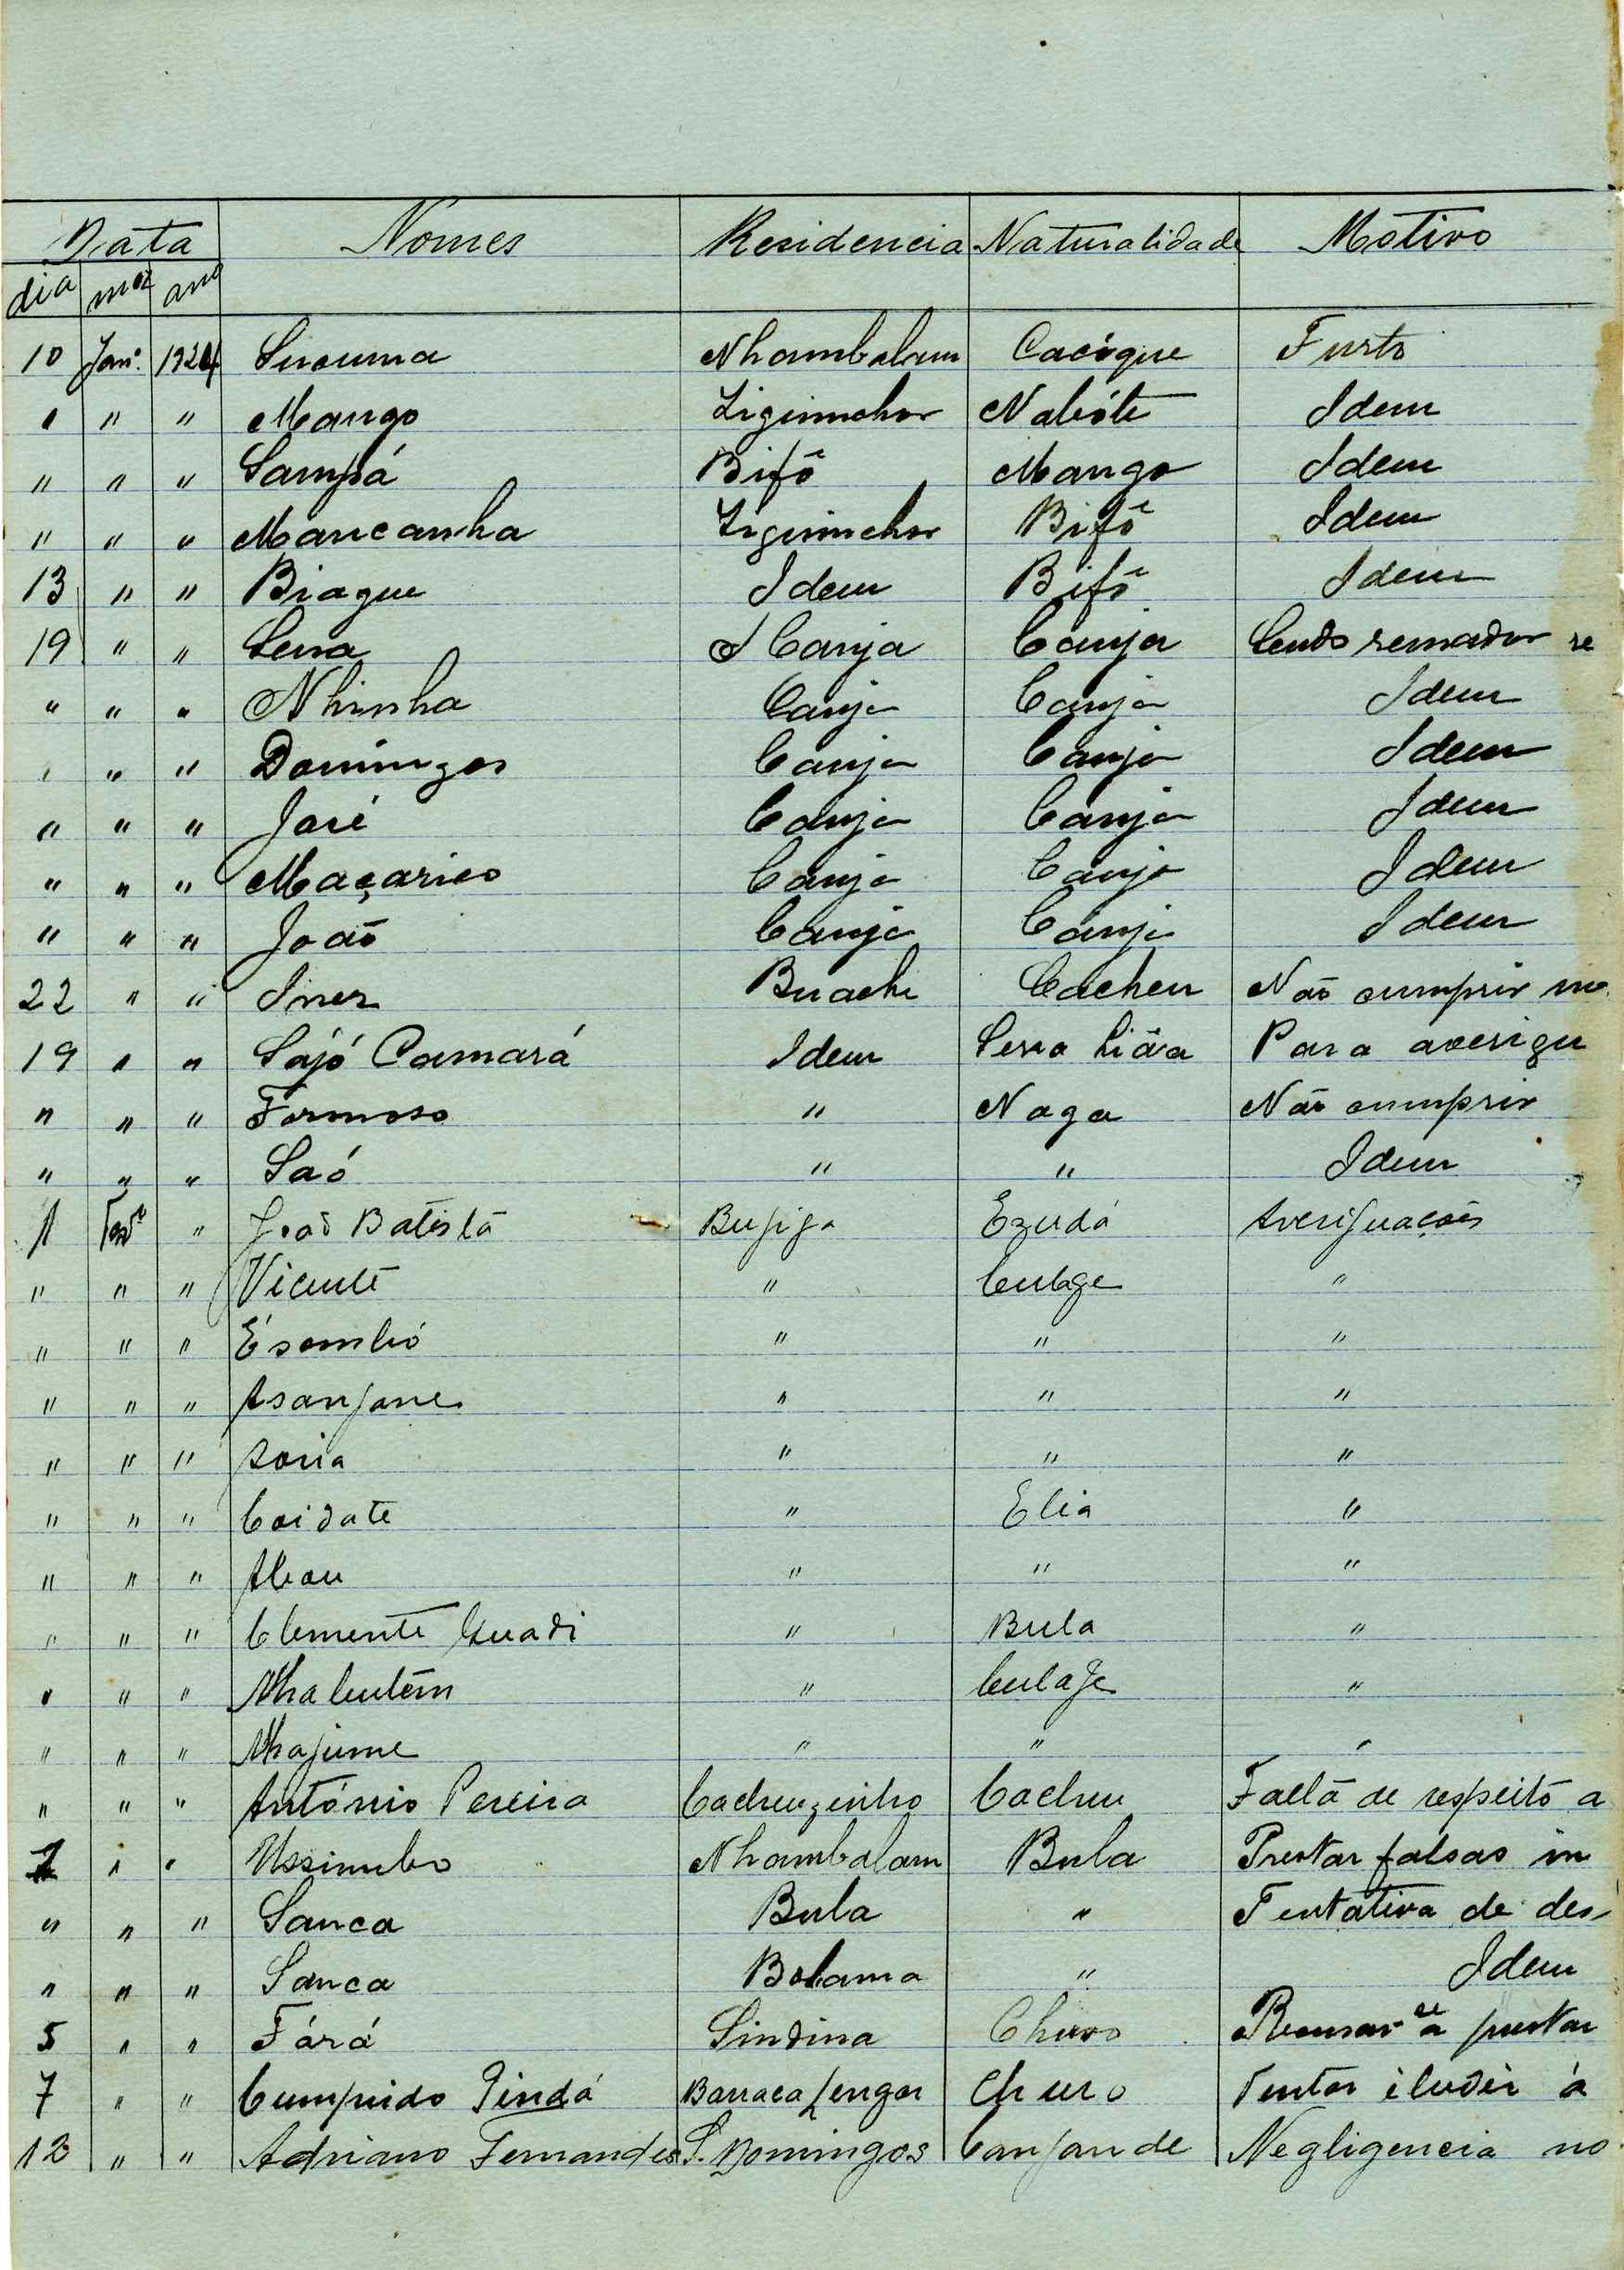 Data Nomes Residencia Naturalidade Motivo
dia mez ano
10 Janº. 1924 Suouma Nhambalam Cacógue Furto
" " " Mango Ziguinchor Nabóte Idem
" " " Sampá Bifô Mango Idem
" " " Mancanha Ziguinchor Bifô Idem
13 " " Biague Idem Bifô Idem
19 " " Sena Canja Canja Sendo remador se
" " " Nhinha Canja Canja Idem
" " " Domingos Canja Canja Idem
" " " José Canja Canja Idem
" " " Maçarico Canja Canja Idem
" " " João Canja Canja Idem
22 " " Inez Cacheu Não cumprir
19 " " Sajó Camará Idem Serra Liôa Para averigu
" " " Formoso " Naga Não cumprir
" " " Saó " " Idem
1 Fevº " João Batista Bujiga Ezudá Averiguações
" " " Vicente " Culage "
" " " Ésombó " " "
" " " Asanjane " " "
" " " Soria " " "
" " " Coidate " Elia "
" " " " " "
" " " Clemente " Bula "
" " " Nhabutêm " Culaje "
" " " Nhajume " " "
" " " António Pereira Cacheuzinho Cacheu Falta de respeito a
1 " " Ussimbo Nhambalam Bula Prestar falsas in
" " " Sanca Bula " Tentativa de des-
" " " Sanca Bolama " Idem
5 " " Fárá Sindina Churo Recusar se a prestar
7 " " Cumprido Pindá Barraca Lengar Churo Tentar iludir á
12 " " Adriano Fernandes S. Domingos Canjande Negligencia no